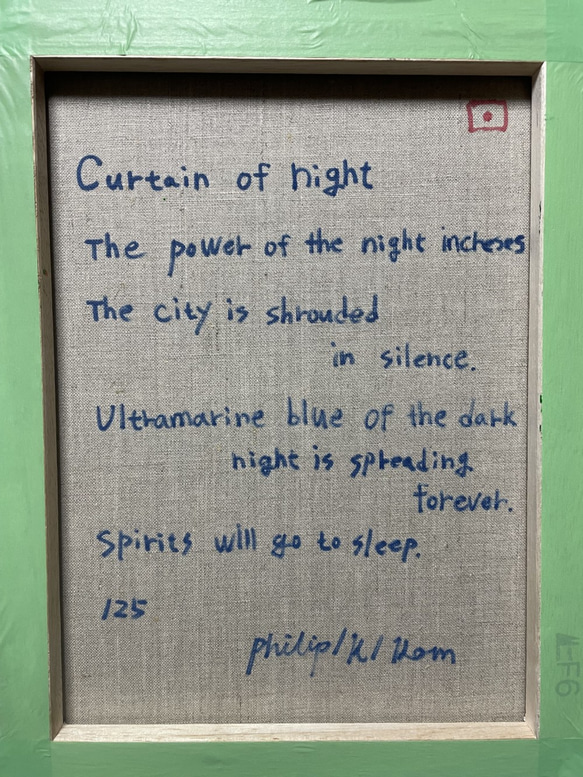 Curtain of night
The power of the night incheses
The city is shrouded
in silence.
Ultramarine blue of the dark
night is spreading
forever.
Spirits will go to sleep.
125
philip/k/